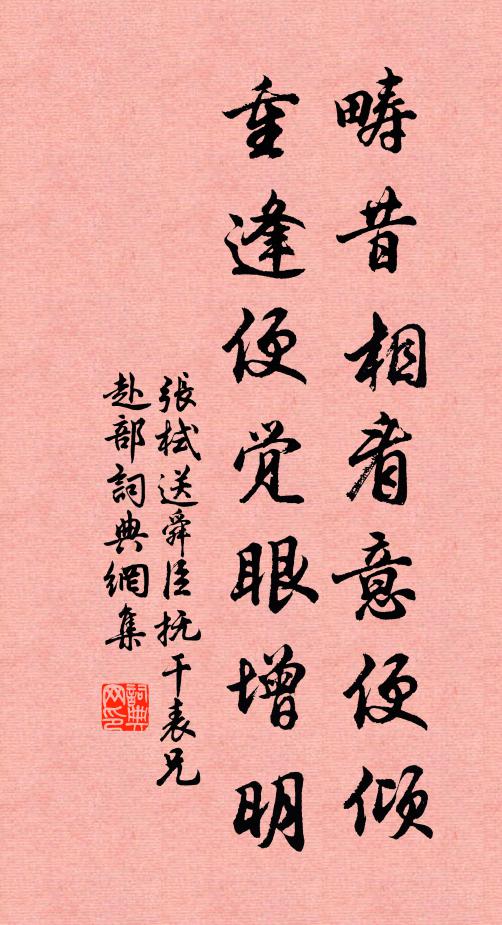 疇昔相看意便傾
重逢便觉眼增明
張栻送舜臣抚干表兄
赴部詞典網集
詞典网印